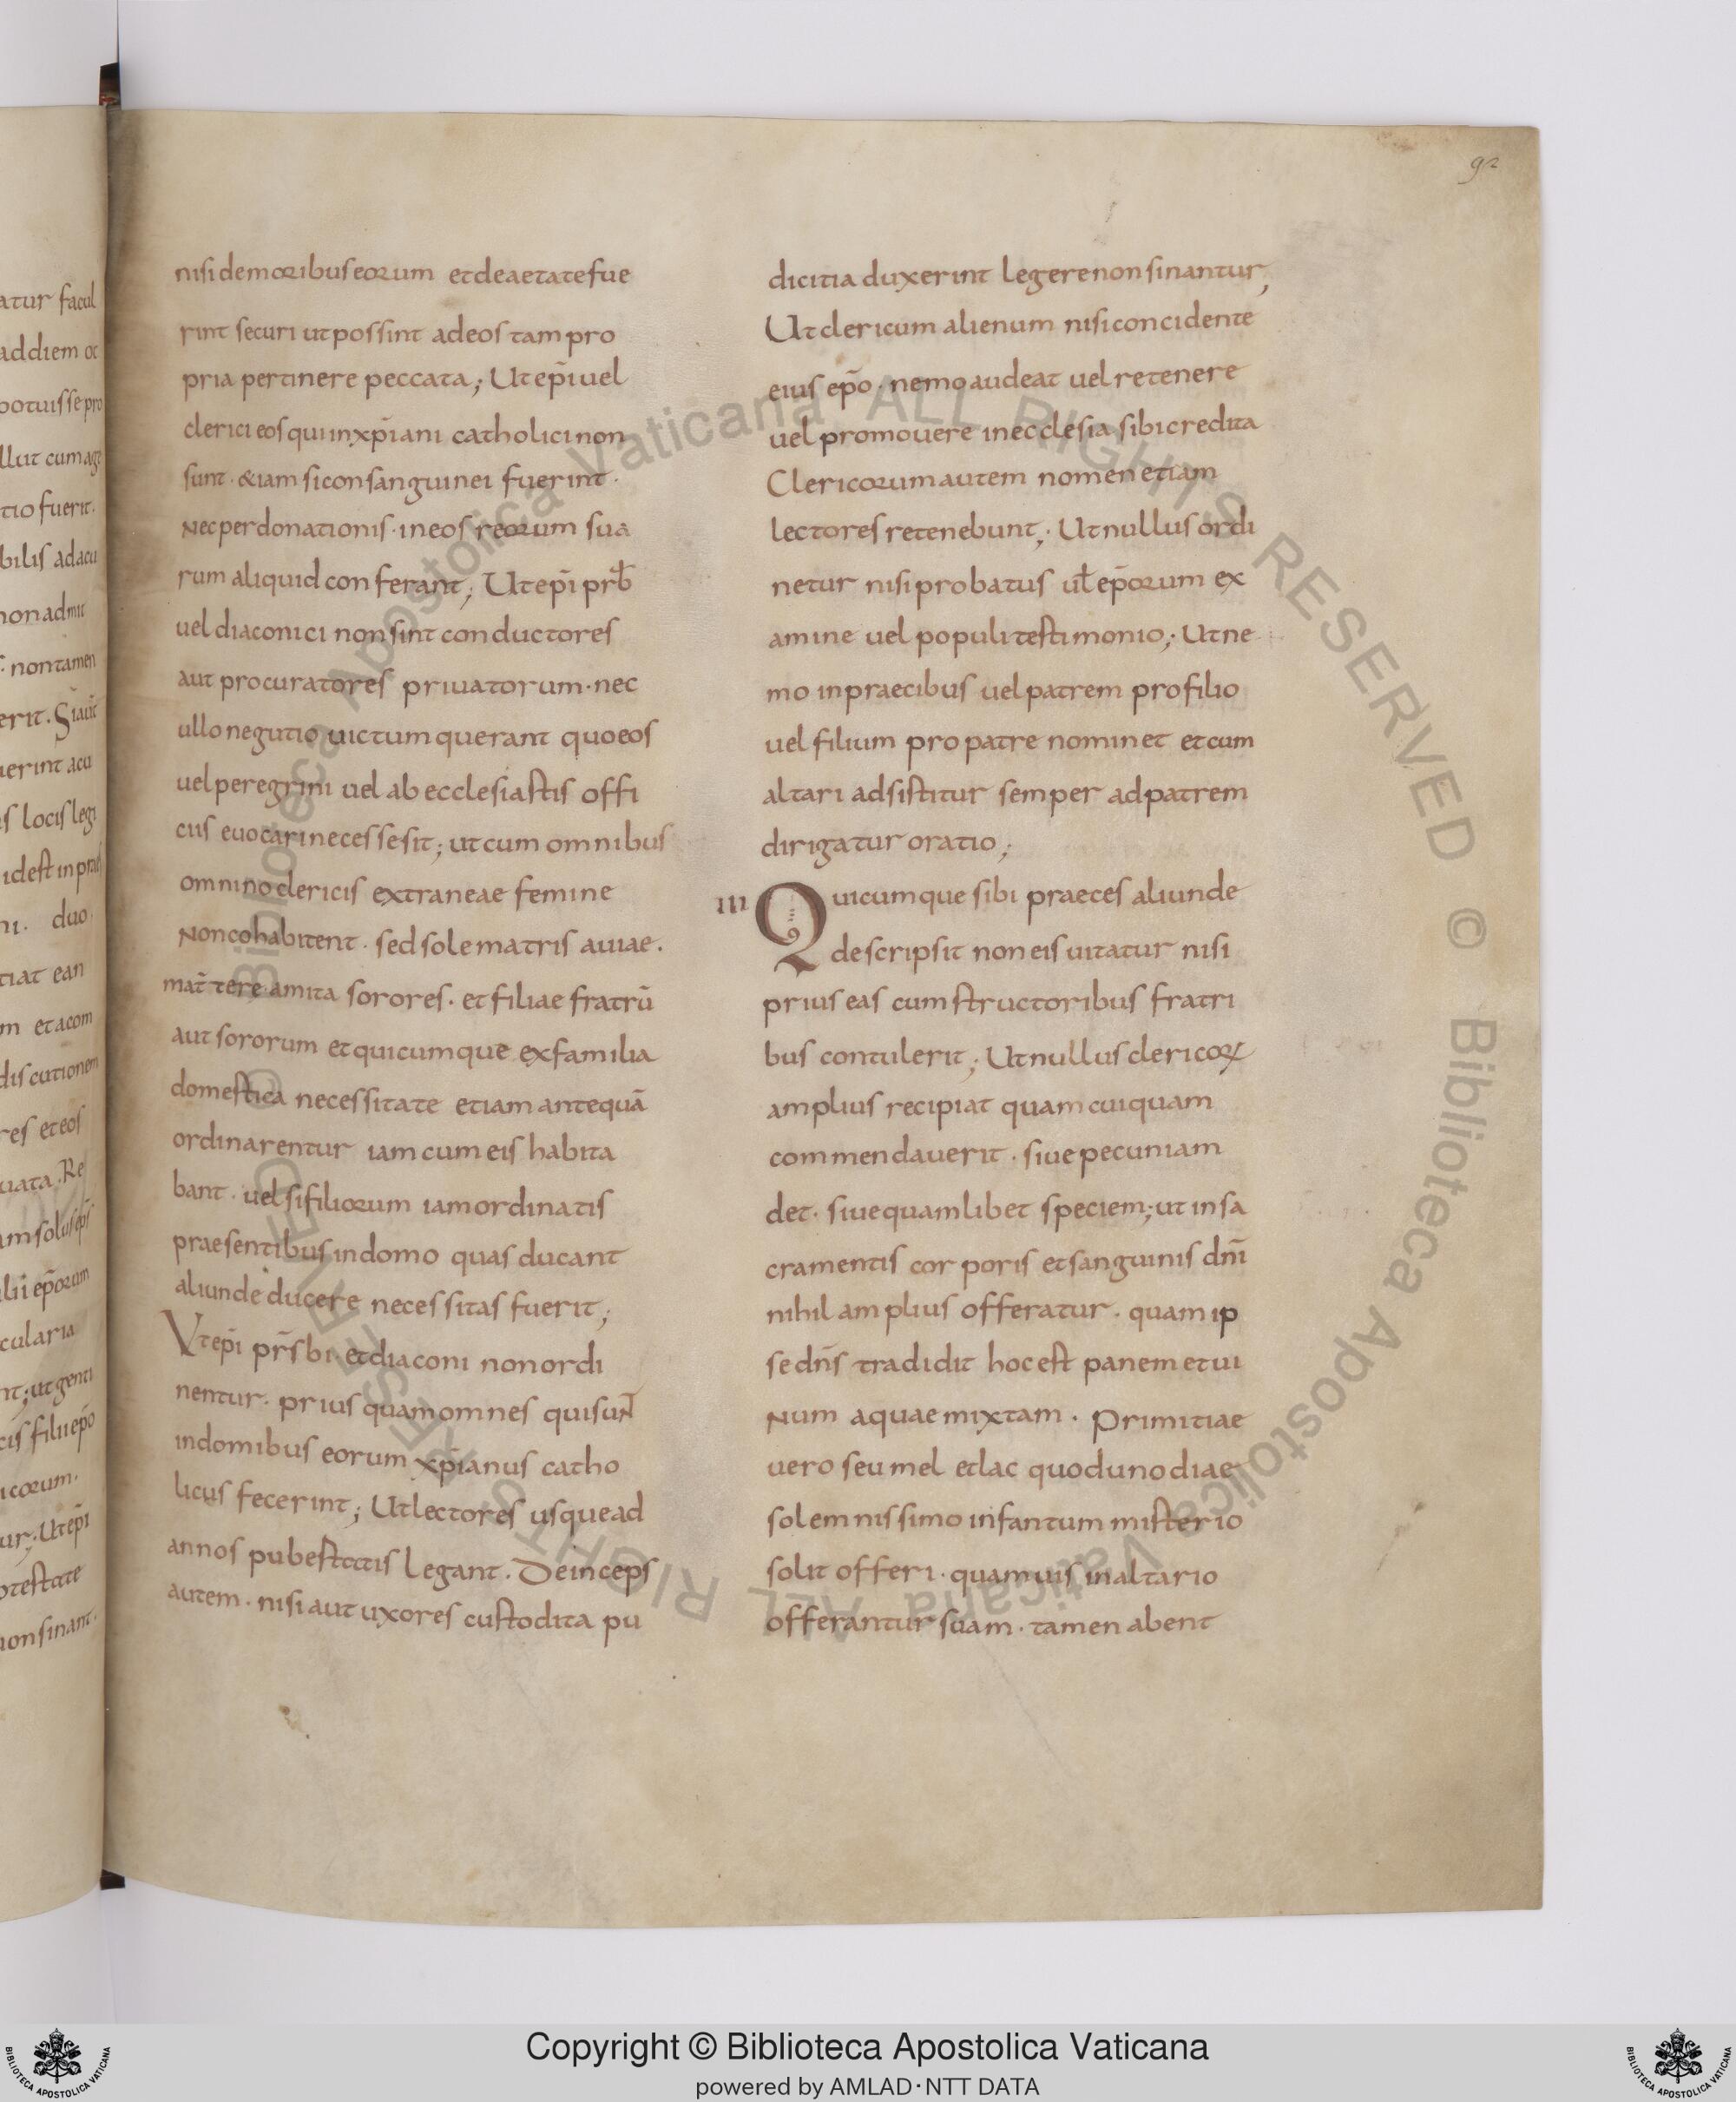 92
nisi de moribus eorum et de aetate fue
rint securi ut possint ad eos tam pro
pria pertinere peccata; Ut ep̄i uel
clerici eos qui in xp̄iani catholici non
sunt · &iam si consanguinei fuerint ·
Nec per donationis · in eos reorum sua
rum aliquid conferant; Ut ep̄i prb̄
uel diaconici non sint conductores
aut procuratores priuatorum · nec
ullo negutio uictum querant quo eos
uel peregrini uel ab ecclesiastis offi
cus euocari necesse sit; ut cum omnibus
omnino clericis extraneae femine
Non cohabitent · sed sole matris auiae ·
mat̄tere amita sorores · et filiae fratrū
aut sororum et quicumque ex familia
domestica necessitate etiam antequā
ordinarentur iam cum eis habita
bant · uel si filiorum iam ordinatis
praesentibus in domo quas ducant
aliunde ducere necessitas fuerit;
Vt ep̄i pr̄sbi et diaconi non ordi
nentur · prius quam omnes qui suN̄
in domibus eorum xp̄ianus catho
licus fecerint; Ut lectores usque ad
annos pubestatis legant · Deinceps
autem · nisi aut uxores custodita pu
dicitia duxerint legere non sinantur;
Ut clericum alienum nisi concidente
eius ep̄o · nemo audeat uel retenere
uel promouere in ecclesia sibi credita
Clericorum autem nomen etiam
lectores retenebunt; Ut nullus ordi
netur nisi probatus ul̄ ep̄orum ex
amine uel populi testimonio; Ut ne
mo in praecibus uel patrem pro filio
uel filium pro patre nominet et cum
altari adsistitur semper ad patrem
dirigatur oratio;
III Quicumque sibi praeces aliunde
descripsit non eis uitatur nisi
prius eas cum structoribus fratri
bus contulerit; Ut nullus clericoꝝ
amplius recipiat quam cuiquam
commendauerit · siue pecuniam
det · siue quamlibet speciem; ut in sa
cramentis corporis et sanguinis dn̄i
nihil amplius offeratur · quam ip
se dn̄s tradidit hoc est panem et ui
Num aquae mixtam · Primitiae
uero seu mel et lac quod uno diae
solemnissimo infantum misterio
solit offeri · quamuis in altario
offerantur suam · tamen abent
Copyright © Biblioteca Apostolica Vaticana
powered by AMLAD·NTT DATA